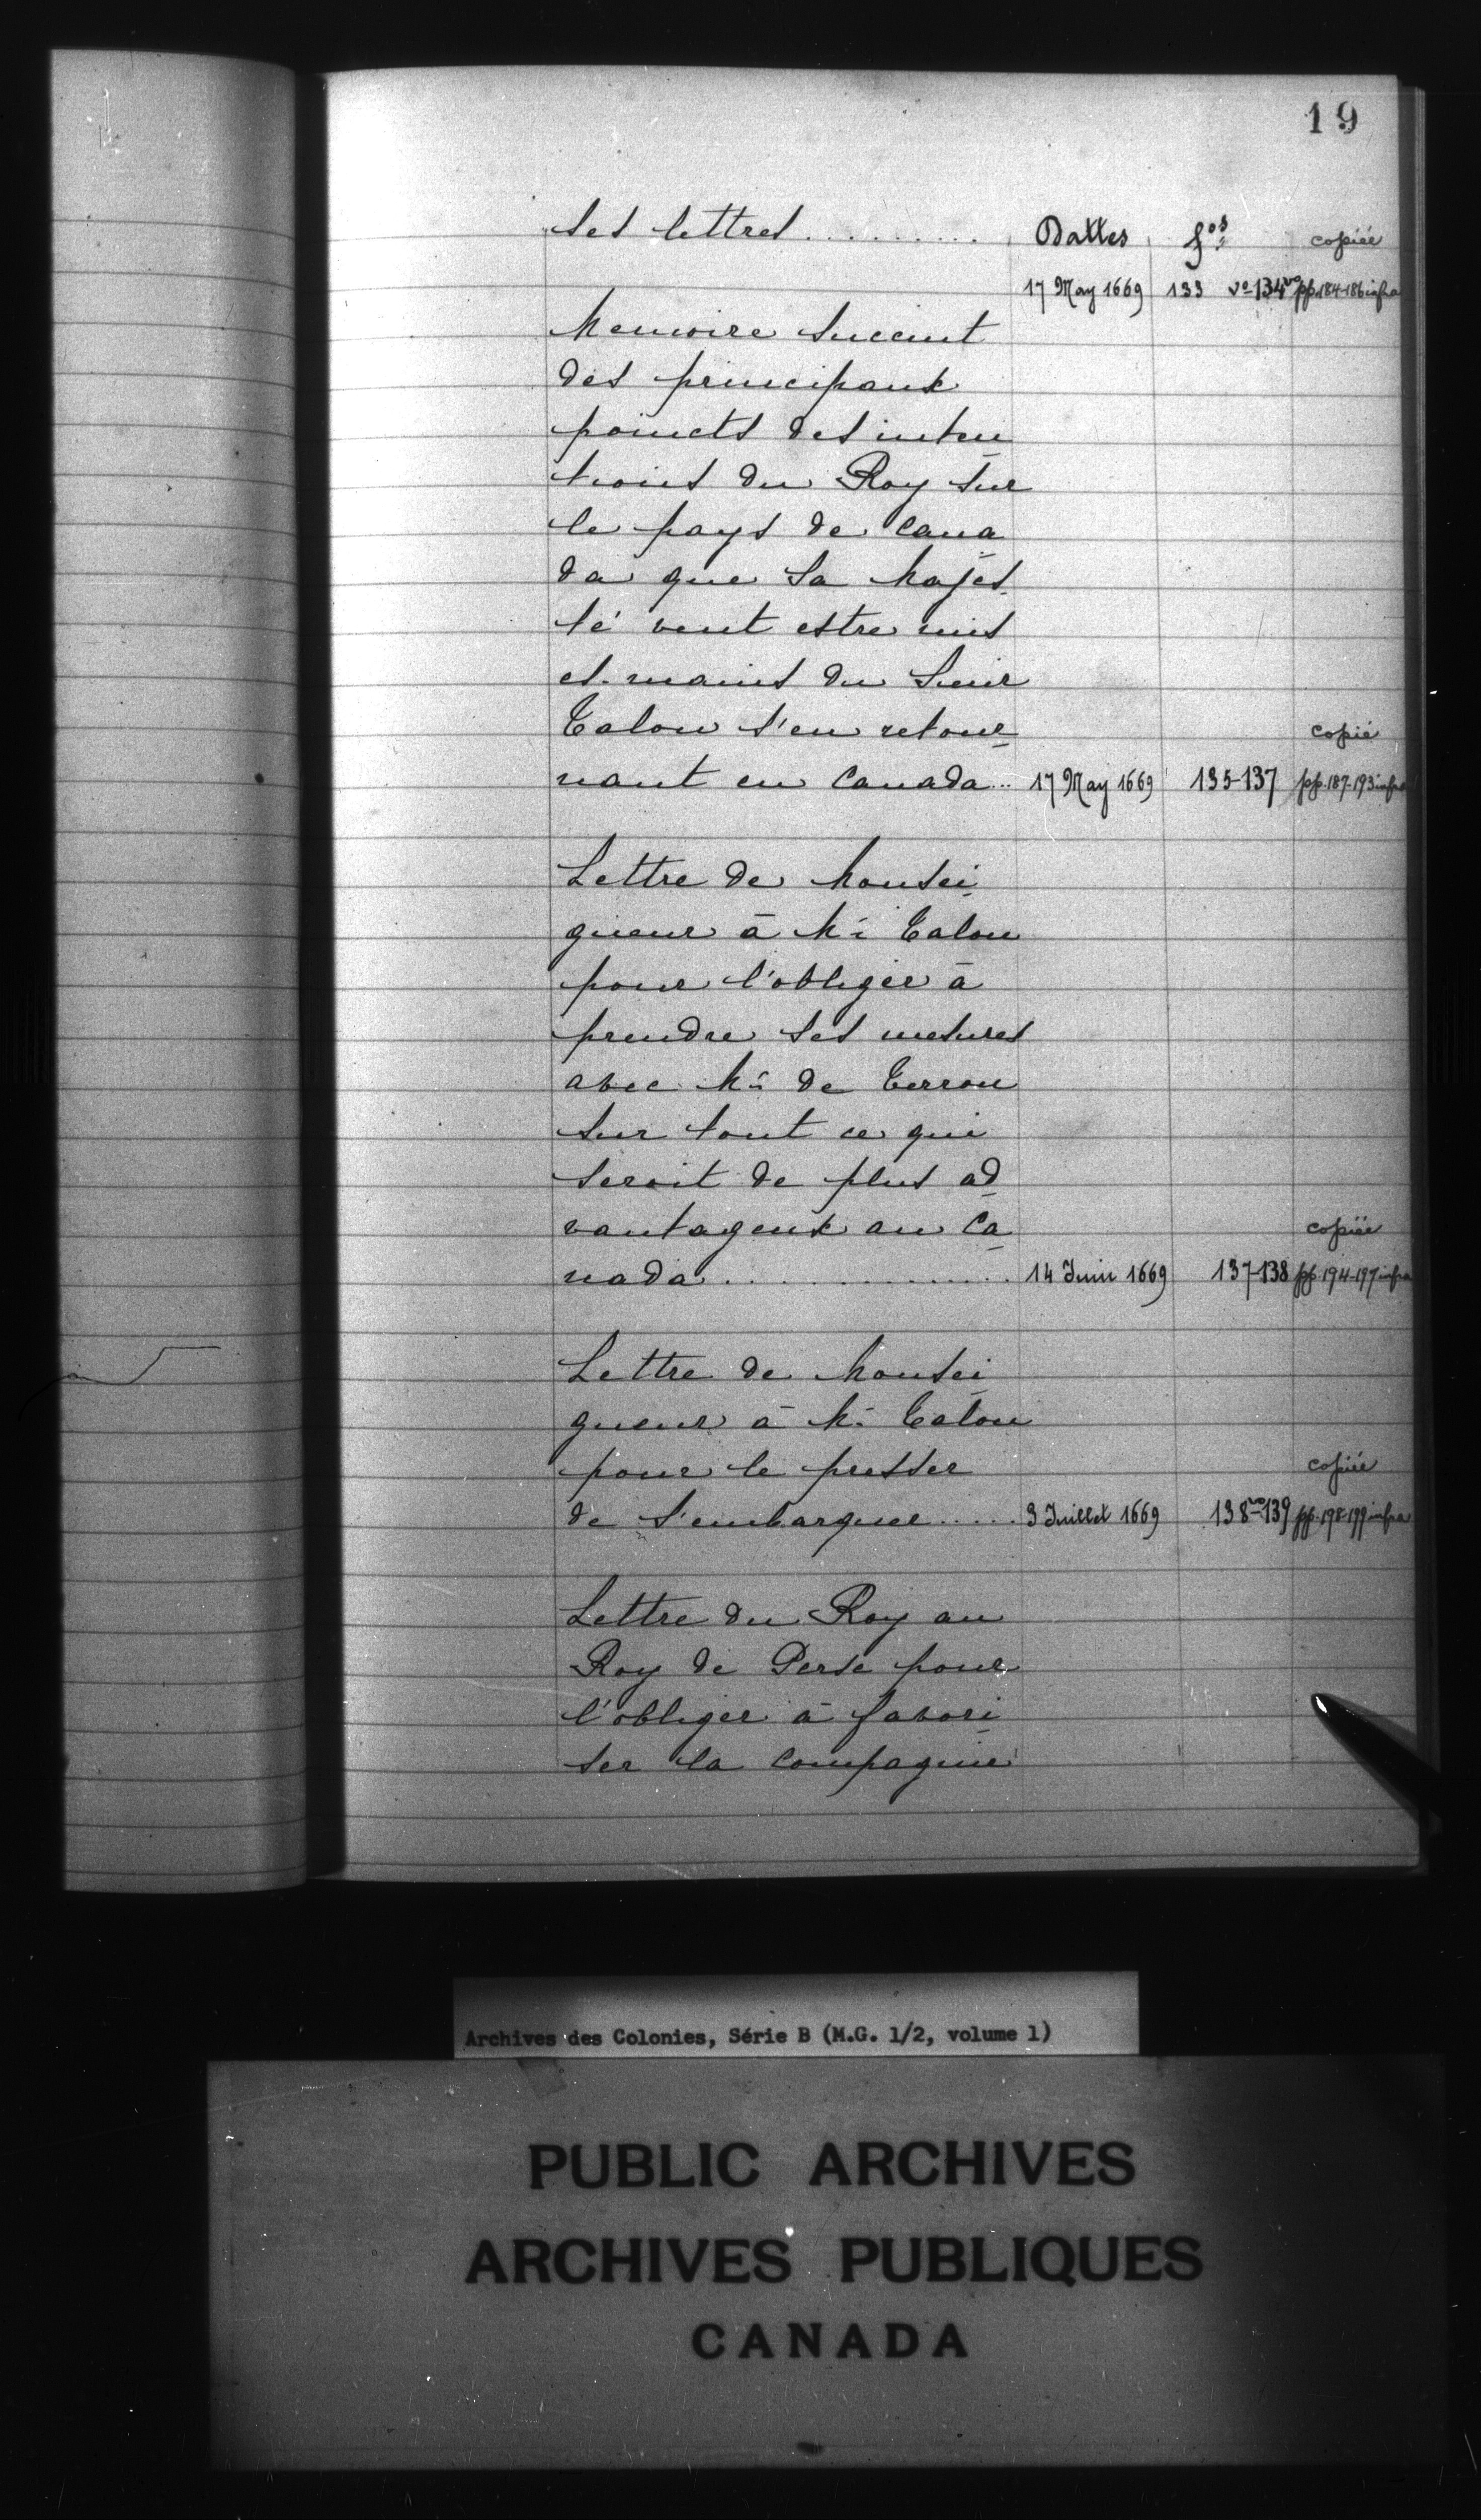 19
ses lettres .......... Dattes fos copiée
17 May 1669 133 vo-134vo pp.184-186 infra
Memoire Succint
des principaux
poincts des inten
tions du Roy sur
le pays de Cana
da que Sa Majes
té veut estre mis
es mains du Sieur
Talon s'en retour
nant en Canada... 17 May 1669 135-137 copié pp.187-193 infra
Lettre de Monsei
gneur à Mr Talon
pour l'obliger à
prendre ses mesures
avec Mr de Terron
sur tout ce qui
seroit de plus ad
vantageux au Ca
nada .............. 14 Juin 1669 137-138 copiée pp.194-197 infra
Lettre de Monsei
gneur à Mr Talon
pour le presser
de s'embarquer ..... 3 Juillet 1669 138vo-139 copiée pp.198-199 infra
Lettre du Roy au
Roy de Perse pour
l'obliger à favori
ser la Compagnie
Archives des Colonies, Série B (M.G. 1/2, volume 1)
PUBLIC ARCHIVES
ARCHIVES PUBLIQUES
CANADA